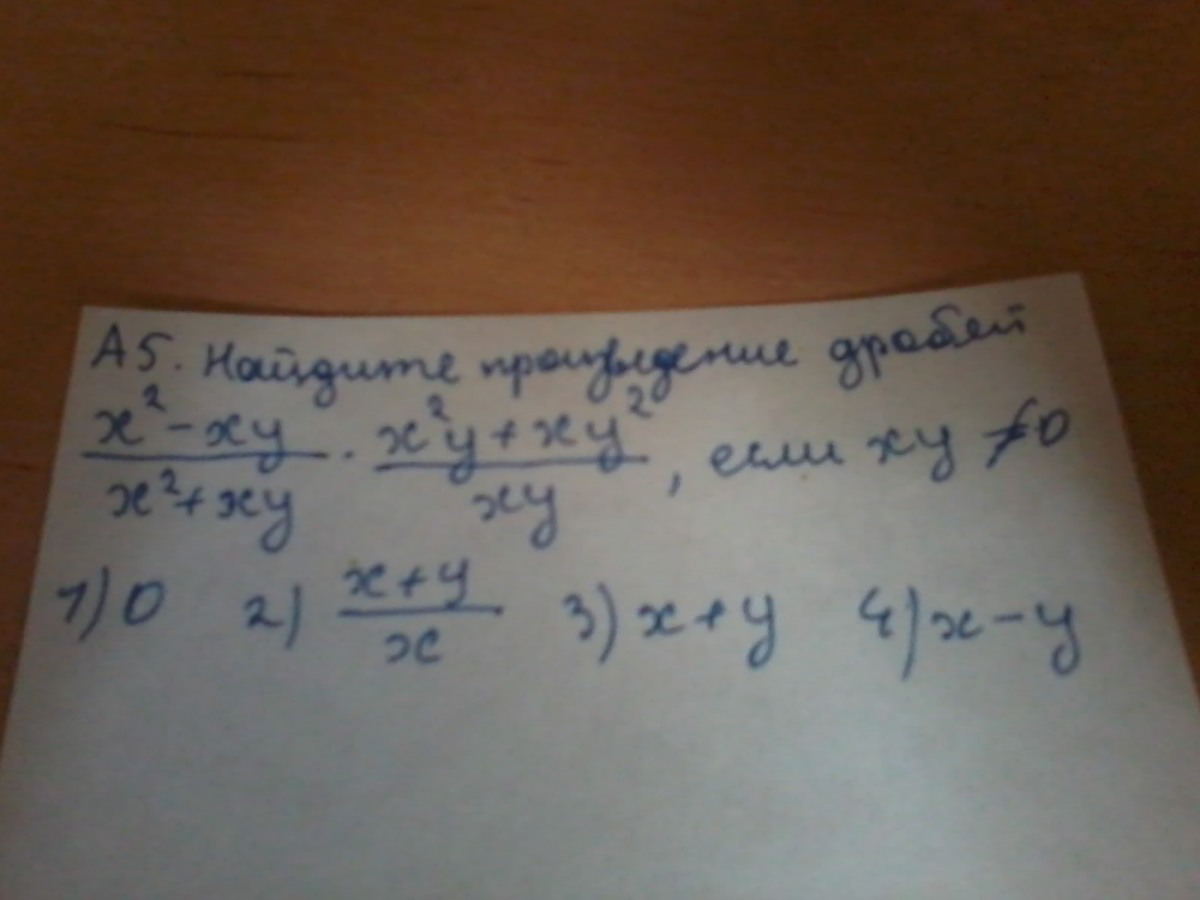 А5. Найдите произведение дробей
x² - xy / x² + xy · x²y + xy² / xy , если xy ≠ 0
1) 0 2) x + y / x 3) x + y 4) x - y